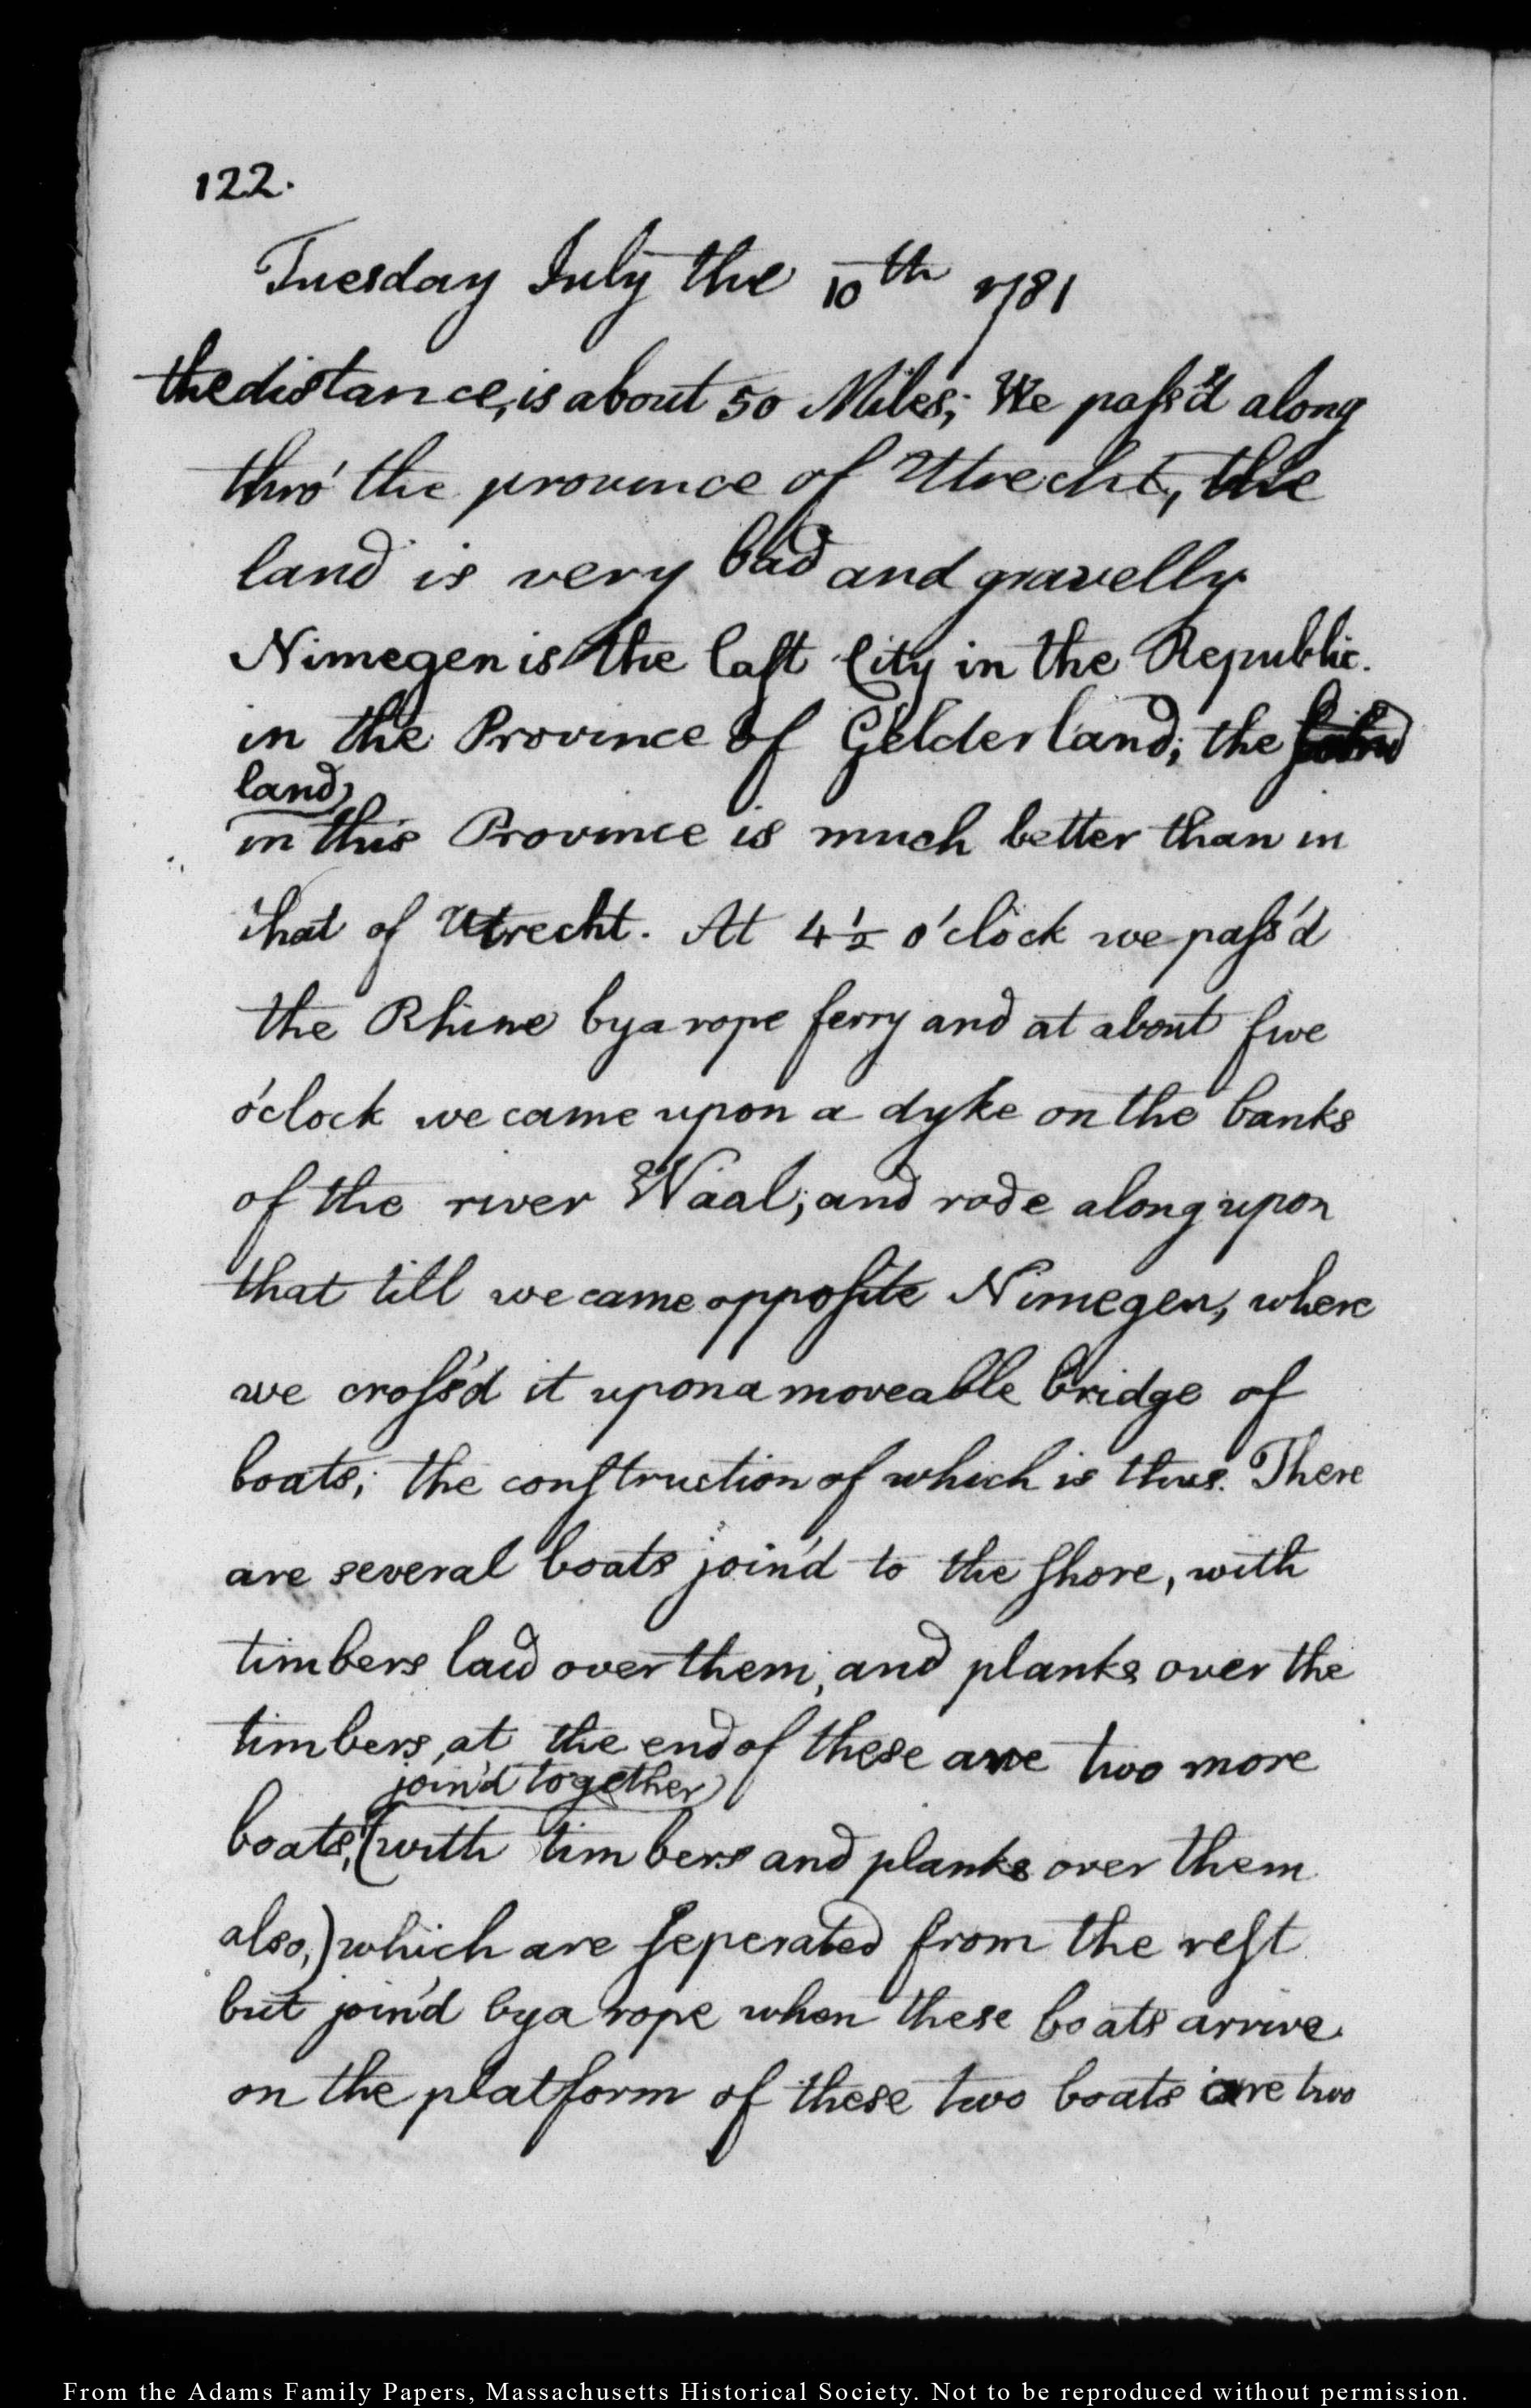 122.
Tuesday July the 10th 1781
the distance, is about 50 Miles; We paſs'd along
thro' the province of Utrecht, the
land is very bad and gravelly
Nimegen is the laſt City in the Republic.
in the Province of Gelderland; the
land
in this Province is much better than in
that of Utrecht. At 4 1/2 o'clock we paſs'd
the Rhine by a rope ferry and at about five
o'clock we came upon a dyke on the banks
of the river Waal; and rode along upon
that till we came oppoſite Nimegen, where
we croſs'd it upon a moveable bridge of
boats; the conſtruction of which is thus. There
are several boats join'd to the ſhore, with
timbers laid over them, and planks over the
timbers, at the end of these are two more
join'd together
boats, (with timbers and planks over them
also,) which are ſeperated from the reſt
but join'd by a rope when these boats arrive
on the platform of these two boats are two
From the Adams Family Papers, Massachusetts Historical Society. Not to be reproduced without permission.